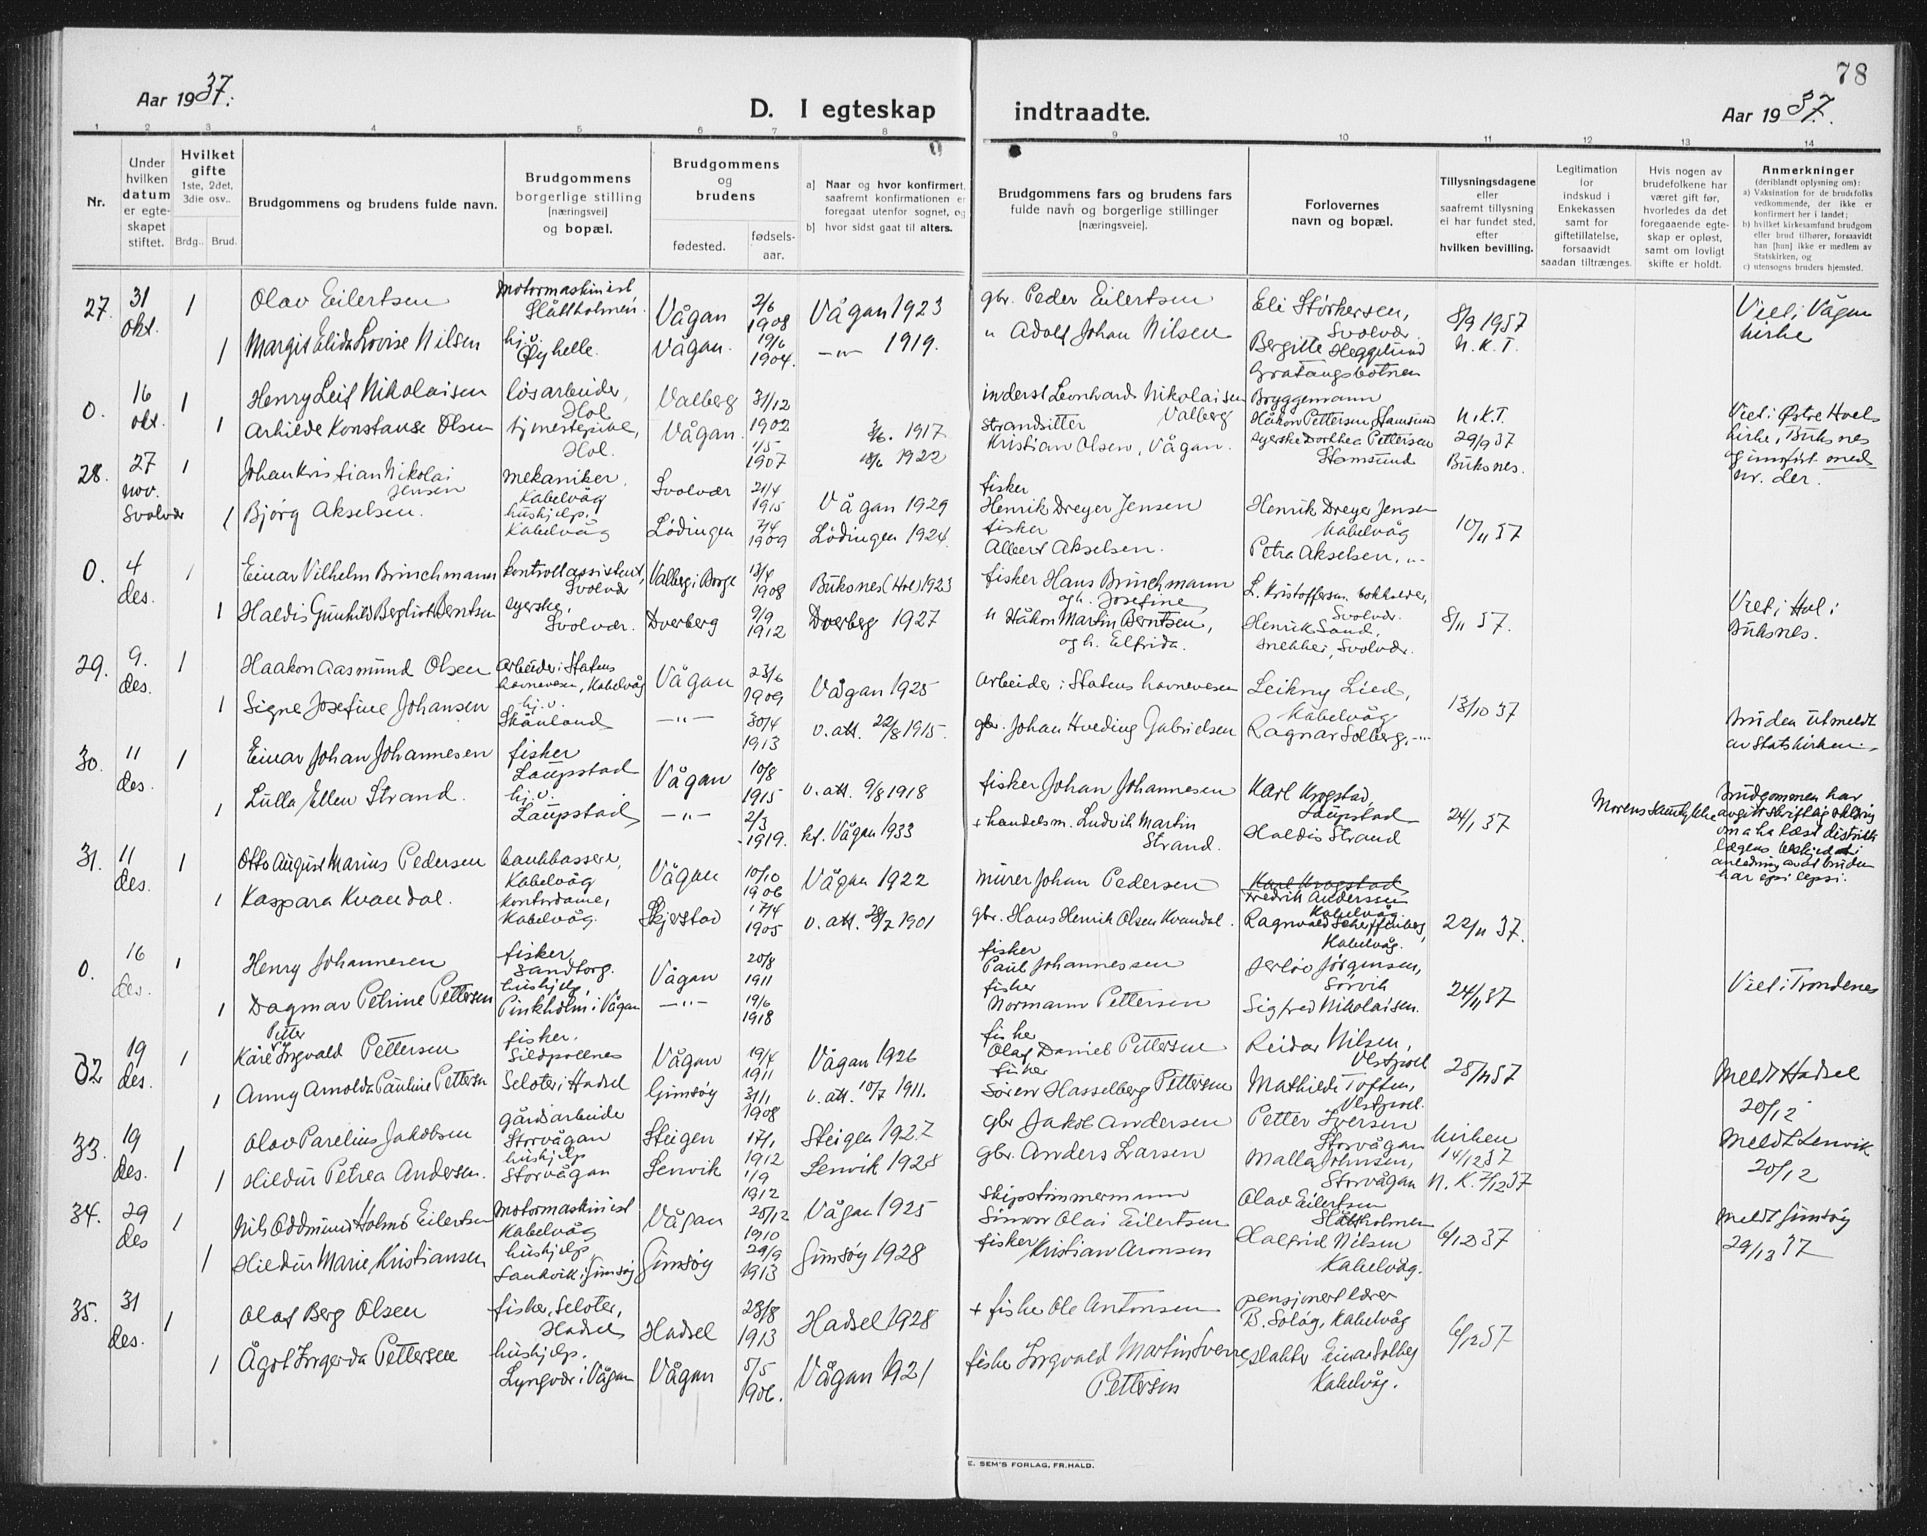 78
Aar 1937.
D. I egteskap indtraadte.
Aar 1937.
1 2 3 4 5 6 7 8 9 10 11 12 13 14
Nr.
Under hvilken datum er egte-skapet stiftet.
Hvilket gifte 1ste, 2det, 3die osv..
Brdg.. Brud.
Brudgommens og brudens fulde navn.
Brudgommens borgerlige stilling [næringsvei] og bopæl.
Brudgommens og brudens
fødested. fødsels-aar.
a] Naar og hvor konfirmert, saafremt konfirmationen er foregaat utenfor sognet, og
b] hvor sidst gaat til alters.
Brudgommens fars og brudens fars fulde navn og borgerlige stillinger [næringsvei].
Forlovernes navn og bopæl.
Tillysningsdagene eller saafremt tillysning ei har fundet sted, efter hvilken bevilling.
Legitimation for indskud i Enkekassen samt for giftetillatelse, forsaavidt saadan tiltrænges.
Hvis nogen av brudefolkene har været gift før, hvorledes da det foregaaende egte-skap er opløst, samt om lovligt skifte er holdt.
Anmerkninger (deriblandt oplysning om):
a) Vaksination for de brudefolks vedkommende, der ikke er konfirmert her i landet;
b) hvilket kirkesamfund brudgom eller brud tilhører, forsaavidt han [hun] ikke er medlem av Statskirken, og
c) utensogns bruders hjemsted.
27. 31 okt. 1 Olav Eilertsen Motormaskinist Slåttholmen. Vågan 2/6 1908 Vågan 1923 gbr. Peder Eilertsen Eli Størkersen, Svolvær 8/9 1937 Viet i Vågan kirke
1 Margit Elida Lovise Nilsen hj.v. Øyhelle. Vågan. 19/6 1904. —"— 1919. " Adolf Johan Nilsen Bergitte Heggelund Gratangsbotnen N.K.T.
0. 16 okt. 1 Henry Leif Nikolaisen løsarbeider, Hol Valberg 31/12 1902 3/6. 1917 inderst Leonhard Nikolaisen Valberg Bryggemann Håkon Pettersen Stamsund N.K.T. 29/9 37 Buksnes. Viet i Østre Hols kirke, Buksnes og innført med nr. der.
1 Arhilde Konstanse Olsen tjenestepike, Hol. Vågan. 1/5 1907 18/6 1922 strandsitter Kristian Olsen, Vågan. syerske Dorthea Pettersen Stamsund
28. 27 nov. Svolvær 1 Johan Kristian Nikolai Jensen mekaniker, Kabelvåg Svolvær 21/4 1915 Vågan 1929 fisker Henrik Dreyer Jensen Henrik Dreyer Jensen Kabelvåg 10/11 37
1 Bjørg Akselsen. hushjelp. Kabelvåg Lødingen 7/4 1909 Lødingen 1924. fisker Albert Akselsen. Petra Akselsen, "
0. 4 des. 1 Einar Vilhelm Brinchmann kontrollassistent, Svolvær Valberg i Borge 13/4 1908 Buksnes (Hol) 1923 fisker Hans Brinchmann og h. Josefine L. Kristoffersen bokholder, Svolvær. 8/11 37. Viet i Hol i Buksnes.
1 Haldis Gunhild Bergliot Berntsen syerske, Svolvær. Dverberg 9/9 1912 Dverberg 1927 " Håkon Martin Berntsen, og h. Elfrida. Henrik Sand, snekker, Svolvær.
29. 9. des. 1 Haakon Aasmund Olsen arbeider i Statens havnevesen, Kabelvåg Vågan 23/6 1909 Vågan 1925 Arbeider i Statens havnevesen Leikny Lied, Kabelvåg 13/10 37
1 Signe Josefine Johansen hj.v. Skånland —"— 30/4 1913 v. att. 22/8 1915. gbr. Johan Hveding Gabrielsen Ragnar Solberg, —" Bruden utmeldt av Statskirken.
30. 11 des. 1 Einar Johan Johannesen fisker Laupstad Vågan 10/8 1915 v. att. 9/8 1918 fisker Johan Johannesen Karl Krogstad, Laupstad 24/1 37 Morens samtykke Brudgommen har avgitt skriftlig erklæring om a ha læst distriktslægens beskjed i anledning av at bruden har epilepsi.
1 Lulla Ellen Strand. hj.v. Laupstad —"— 2/3 1919. kf. Vågan 1933 + handelsm. Ludvik Martin Strand. Haldis Strand
31. 11 des. 1 Otto August Marius Pedersen bankkasserer, Kabelvåg Vågan 10/10 1906 Vågan 1922 murer Johan Pedersen Karl Krogstad Fredrik Anderssen Kabelvåg 22/11 37.
1 Kaspara Kvandal. kontordame, Kabelvåg. Skjerstad 17/4 1905 v. att. 28/7 1901 gbr. Hans Henrik Olsen Kvandal. Ragnvald Scheffenberg, Kabelvåg.
0. 16 des. 1 Henry Johannesen fisker, Sandtorg. Vågan 20/8 1911 fisker Paul Johannessen Jørgensen, Sørvik 24/11 37 Viet i Trondenes
1 Dagmar Petrine Pettersen hushjelp, Finkholm i Vågan —"— 19/6 1918 fisker Normann Pettersen Sigfred Nikolaisen.
32 19 des. 1 Kåre Petter Ingvald Pettersen fisker. Sildpollnes Vågan 19/4 1911 Vågan 1926 fisker Olaf Daniel Pettersen Reidar Nilsen, Vestpoll 25/11 37 Meldt Hadsel 20/12
1 Anny Arnolda Pauline Pettersen Seloter i Hadsel Gimsøy 31/1 1908 v. att. 10/7 1911. fisker Søren Hasselberg Pettersen Mathilde Toften, Vestpoll.
33. 19 des. 1 Olav Parelius Jakobsen gårdsarbeider Storvågan Steigen 17/1 1912 Steigen 1927 gbr Jakob Andersen Petter Iversen Storvågan kirken 14/12 37 Meldt Lenvik 20/12
1 Hildur Petrea Andersen. hushjelp Storvågan Lenvik 1/9 1912 Lenvik 1928 gbr. Anders Larsen Malla Johnsen, Storvågan N.K. 7/12 37
34. 29 des 1 Nils Oddmund Holmø Eilertsen Motormaskinist Kabelvåg Vågan 25/12 1910 Vågan 1925 Skipstømmermann Simon Olai Eilertsen Olav Eilertsen Slåttholmen 6/12 37 Meldt Gimsøy 29/12 37
1 Hildur Marie Kristiansen hushjelp Saukvik i Gimsøy Gimsøy 29/9 1913 Gimsøy 1928 fisker Kristian Aronsen Halfrid Nilsen Kabelvåg.
35. 31 des. 1 Olaf Berg Olsen fisker, Seloter, Hadsel Hadsel 28/8 1913 Hadsel 1928 + fisker Ole Antonsen pensjonert lærer B. Solåg, Kabelvåg 6/12 37
1 Ågot Ingerda Pettersen hushjelp. Lyngvær i Vågan Vågan 5/5 1906. Vågan 1921 fisker Ingvald Martin Sverre Pettersen slakter Einar Solberg Kabelvåg.
E. SEM'S FORLAG, FR.HALD.